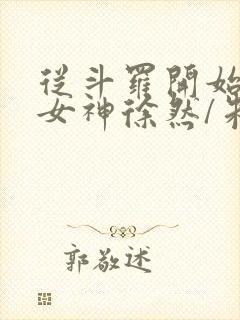 從斗羅開始
女神徐然/朱
郭敬述